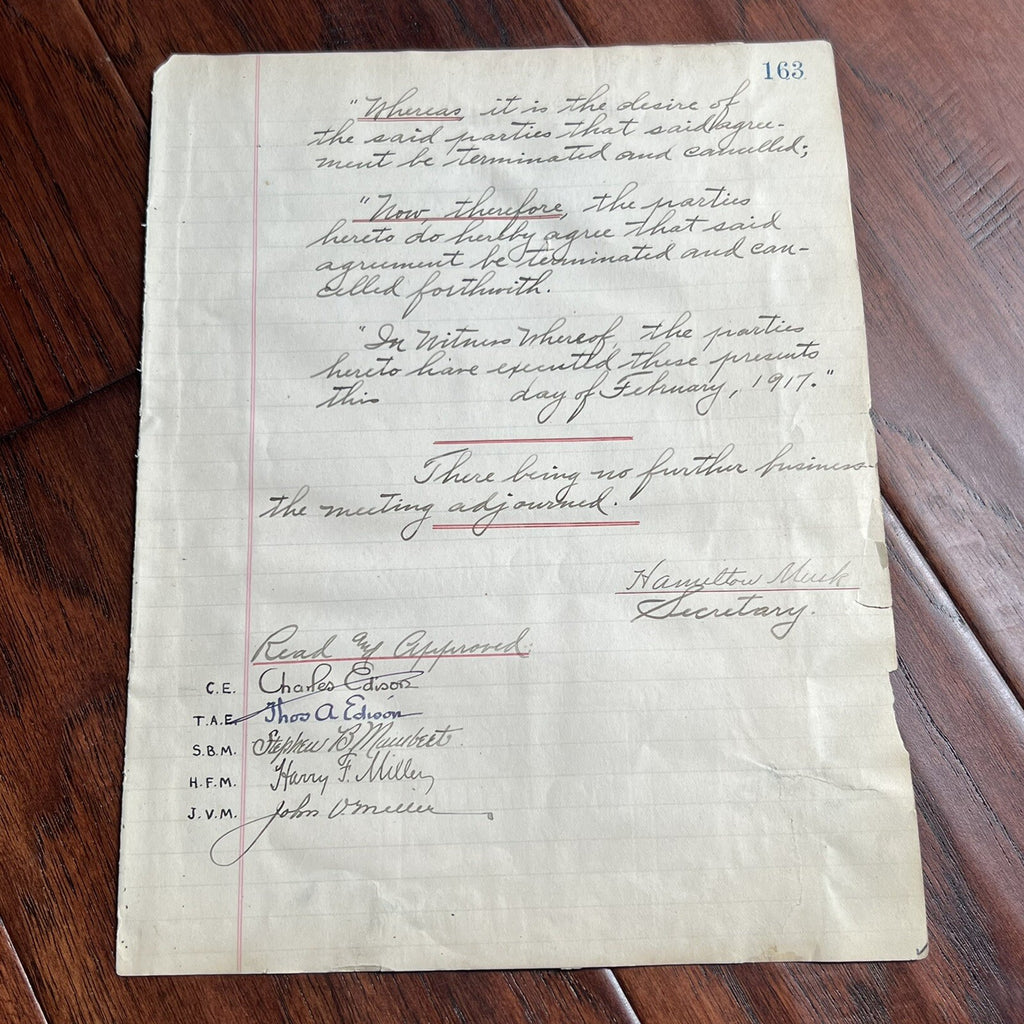 163
"Whereas, it is the desire of
the said parties that said agree-
ment be terminated and cancelled;
"Now, therefore, the parties
hereto do hereby agree that said
agreement be terminated and can-
celled forthwith.
"In Witness Whereof, the parties
hereto have executed these presents
this day of February, 1917."
There being no further business
the meeting adjourned.
Hamilton Muck
Secretary.
Read and Approved
C.E. Charles Edison
T.A.E. Thos A Edison
S.B.M. Stephen B Mambert
H.F.M. Harry F. Miller
J.V.M. John V. Miller